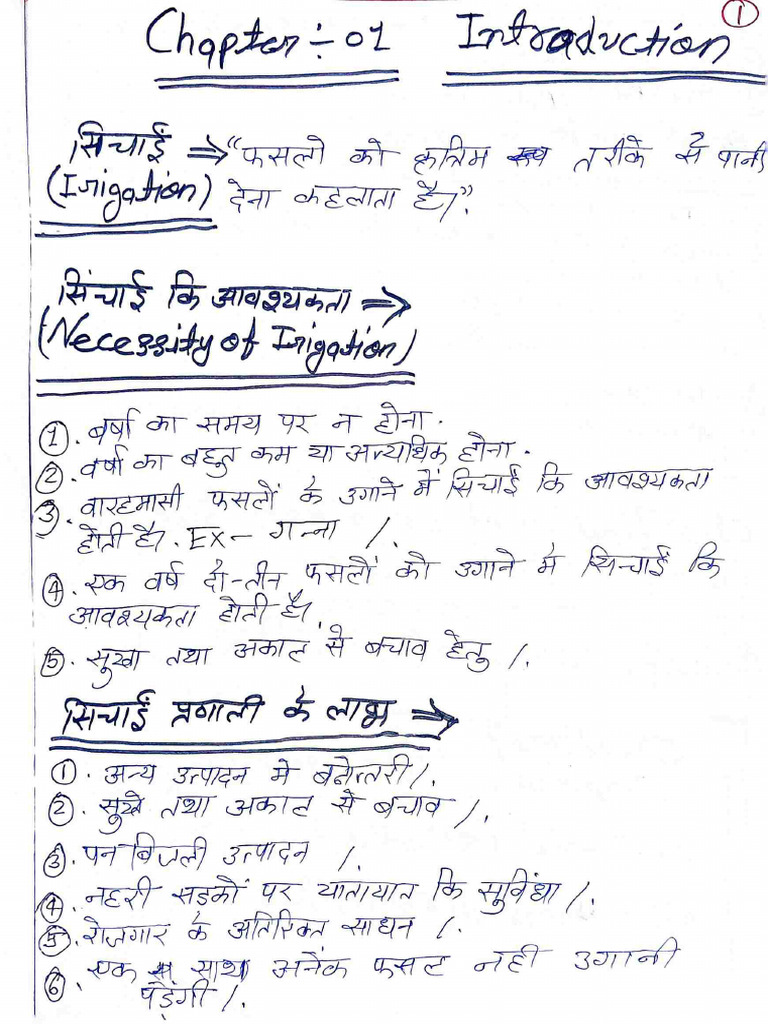 1
Chapter ÷ 01 Introduction
सिचाई ⇒ "फसलो को कृत्रिम तरीके से पानी
(Irigation) देना कहलाता है।".
सिंचाई कि आवश्यकता ⇒
(Necessity of Irigation)
1. बर्षा का समय पर न होना.
2. वर्षा का बहुत कम या अत्यधिक होना.
3. वारहमासी फसलों के उगाने में सिचाई कि आवश्यकता
होती है। Ex- गन्ना /.
4. एक वर्ष दो-तीन फसलों को उगाने मे सिचाई कि
आवश्यकता होती है।
5. सुखा तथा अकाल से बचाव हेतु /.
सिचाई प्रणाली के लाभ ⇒
1. अन्य उत्पादन मे बढोत्तरी /.
2. सुखे तथा अकाल से बचाव /.
3. पन बिजली उत्पादन /.
4. नहरी सड़कों पर यातायात कि सुविधा /.
5. रोजगार के अतिरिक्त साधन /.
6. एक साथ अनेक फसल नही उगानी
पड़ेंगी /.